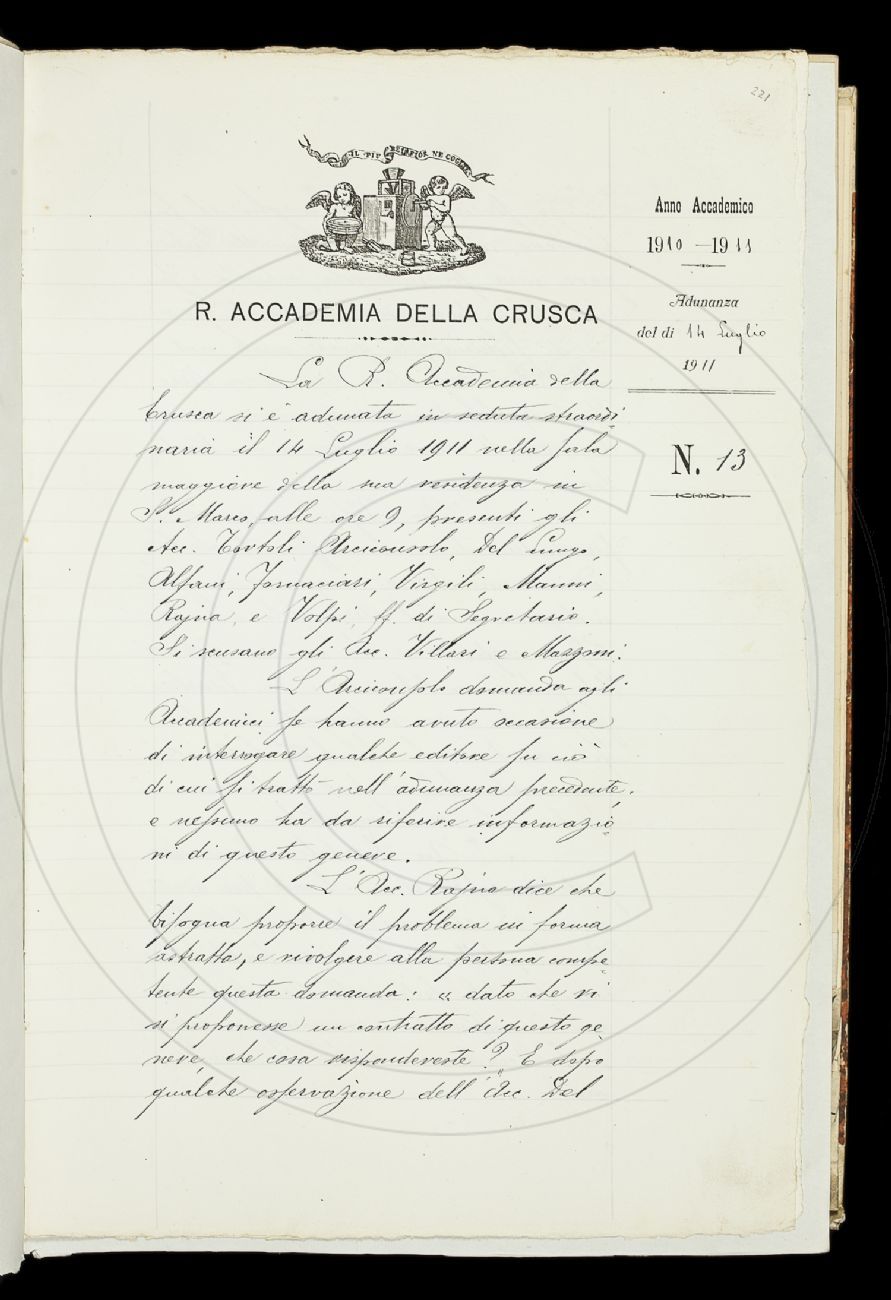 221
IL PIÙ BEL FIOR NE COGLIE
R. ACCADEMIA DELLA CRUSCA
Anno Accademico
1910-1911
Adunanza
del dì 14 Luglio
1911
N. 13
La R. Accademia della
Crusca si è adunata in seduta straordi-
naria il 14 Luglio 1911 nella sala
maggiore della sua residenza in
S. Marco, alle ore 9, presenti gli
Acc. Tortoli Arciconsolo, Del Lungo,
Alfani, Fornaciari, Virgili, Manni,
Rajna, e Volpi, ff. di Segretario.
Si scusano gli Acc. Villari e Mazzoni.
L'Arciconsolo domanda agli
Accademici se hanno avuto occasione
di interrogare qualche editore su ciò
di cui si trattò nell'adunanza precedente,
e nessuno ha da riferire informazio-
ni di questo genere.
L'Acc. Rajna dice che
bisogna proporre il problema in forma
astratta, e rivolgere alla persona compe-
tente questa domanda: « dato che vi
si proponesse un contratto di questo ge-
nere, che cosa rispondereste?" E dopo
qualche osservazione dell'Acc. Del